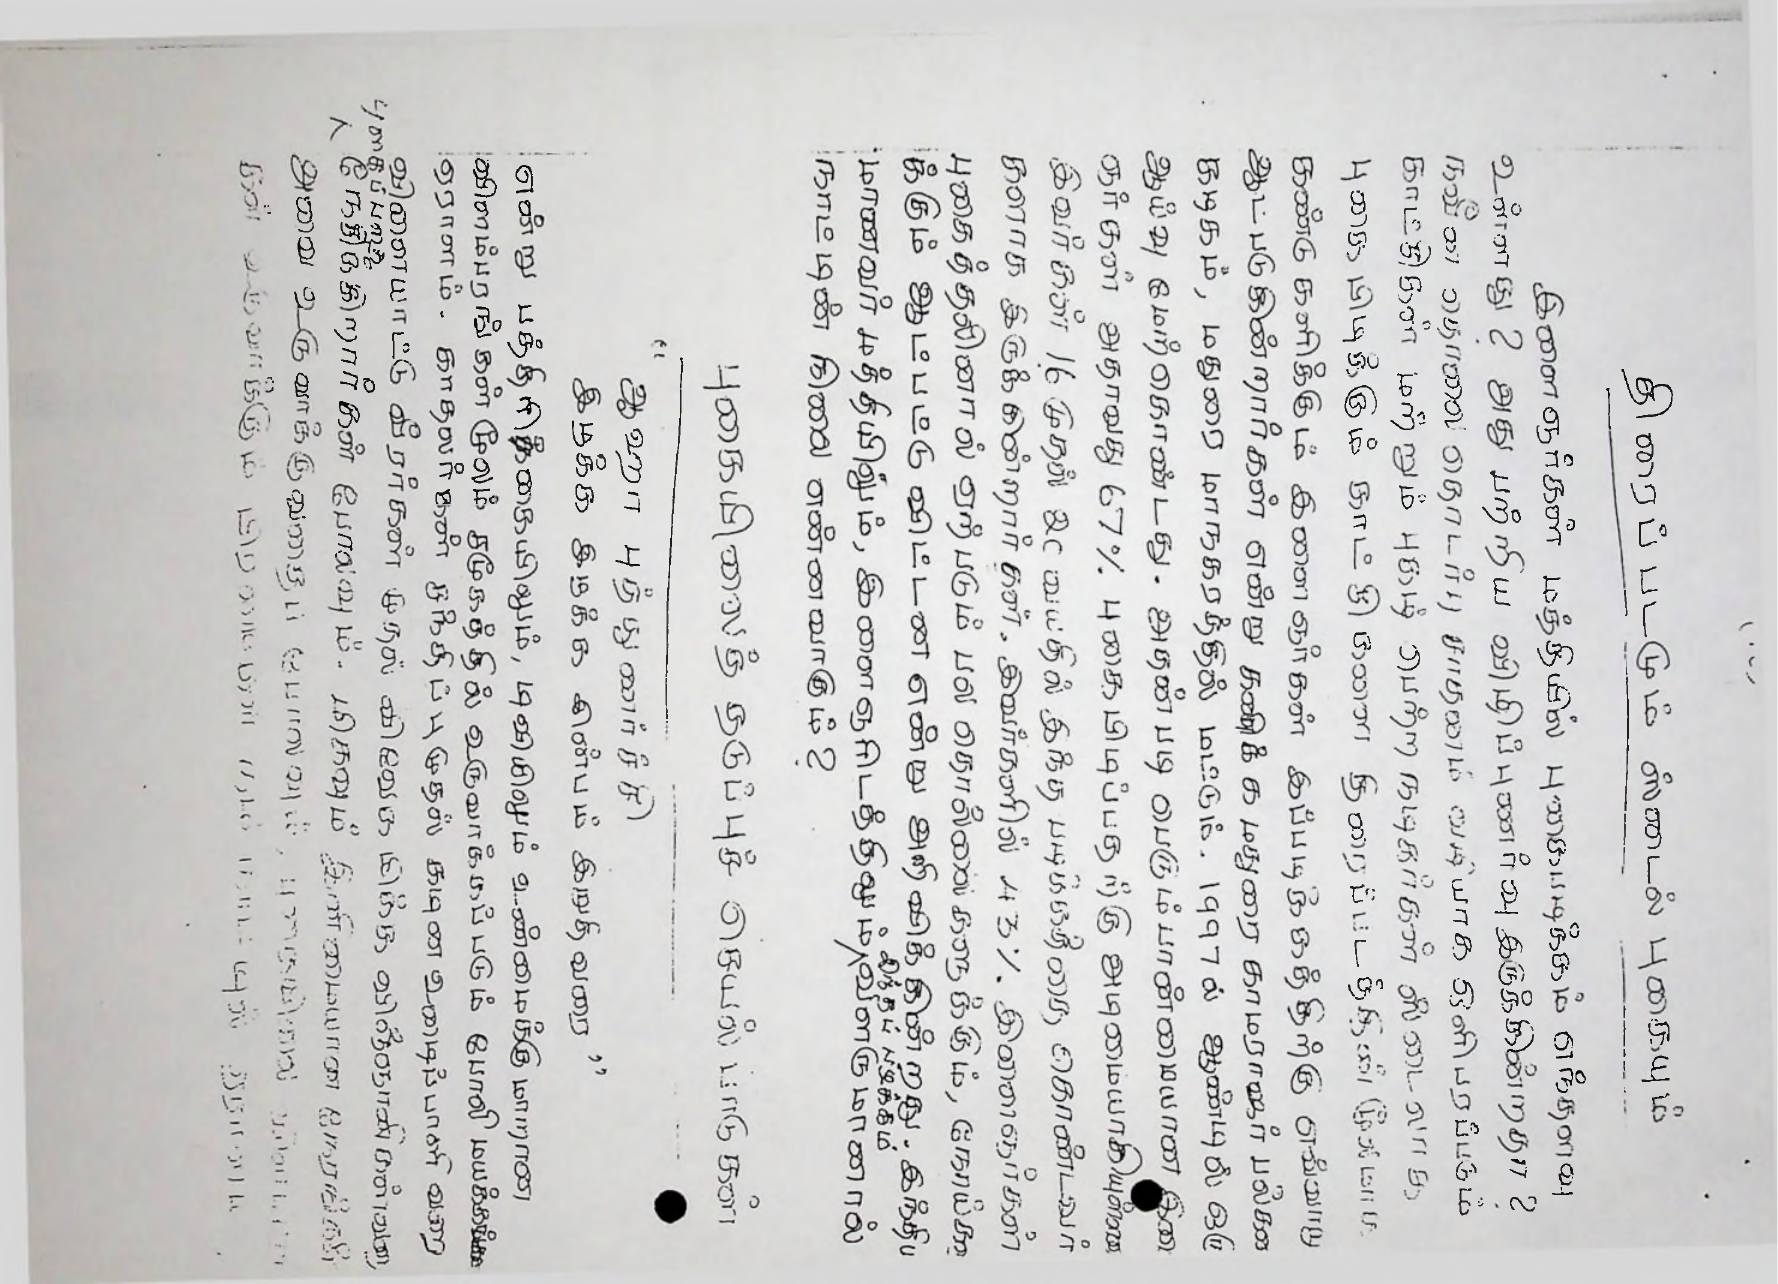 திரைப்படமும் ஸ்டைல் புகையும்
இளைஞர்கள் மத்தியில் புகைபடிக்கும் எந்தளவு
உள்ளது? அது பற்றிய விழிப்புணர்வு இருக்கின்றதா?
நவீன தொலை தொடர்பு சாதனம் வழியாக ஒளிபரப்பும்
காட்சிகள் மற்றும் புகழ் பெற்ற நடிகர்கள் ஸ்டைலாக
புகைபிடிக்கும் காட்சிகளை திரைப்படத்தின் மூலமாக
கண்டுகளிக்கும் இளைஞர்கள் இப்படிக்கத்திற்கு எவ்வாறு
ஆட்படுகின்றார்கள் என்று கணிக்க மதுரை காமராஜர் பல்கலை
கழகம், மதுரை மாநகரத்தில் மட்டும். 1997ல் ஆண்டில் ஒரு
ஆய்வு மேற்கொண்டது. அதன்படி பெரும்பான்மையான இளை
ஞர்கள் அதாவது 67% புகைபிடிப்பதற்கு அடிமையாகியுள்ள
இவர்கள் 16 முதல் 20 வயதில் இந்த பழக்கத்தை கொண்டவர்
களாக இருக்கின்றார்கள். இவர்களில் 43% இளைஞர்கள்
புகைத்தலினால் ஏற்படும் பல தொல்லைகளுக்கும், நோய்க
க்கும் ஆட்பட்டு விட்டன என்று அறிவிக்கின்றது. இந்தி
மாணவர் மத்தியிலும், இளைஞரிடத்திலும் இந்தப் பழக்கம் வளருமானால்
நாட்டின் நிலை என்னவாகும்?
புகையிலைத் தடுப்புச் செயல்பாடுகள்
"ஆஹா புத்துணர்ச்சி
இழுக்க இழுக்க இன்பம் இறுதிவரை"
என்று பத்திரிக்கையிலும், டிவியிலும் உண்மைக்கு மாறான
விளம்பரங்கள் மூலம் சமூகத்தில் உருவாக்கப்படும் போலி மயக்கங்க
ஏராளம். காதலர்கள் சந்திப்பு முதல் கடின உழைப்பாளி வரை
விளையாட்டு வீரர்கள் முதல் விலைமிக்க விஞ்ஞானிகள்வரை,
புகைப்பதை நேசிக்கிறார்கள் போலவும். மிகவும் இனிமையான நேரங்களில்
அவை உருவாக்குவதைப் போலவும், புகையிலை
தன் உருவாக்கும்